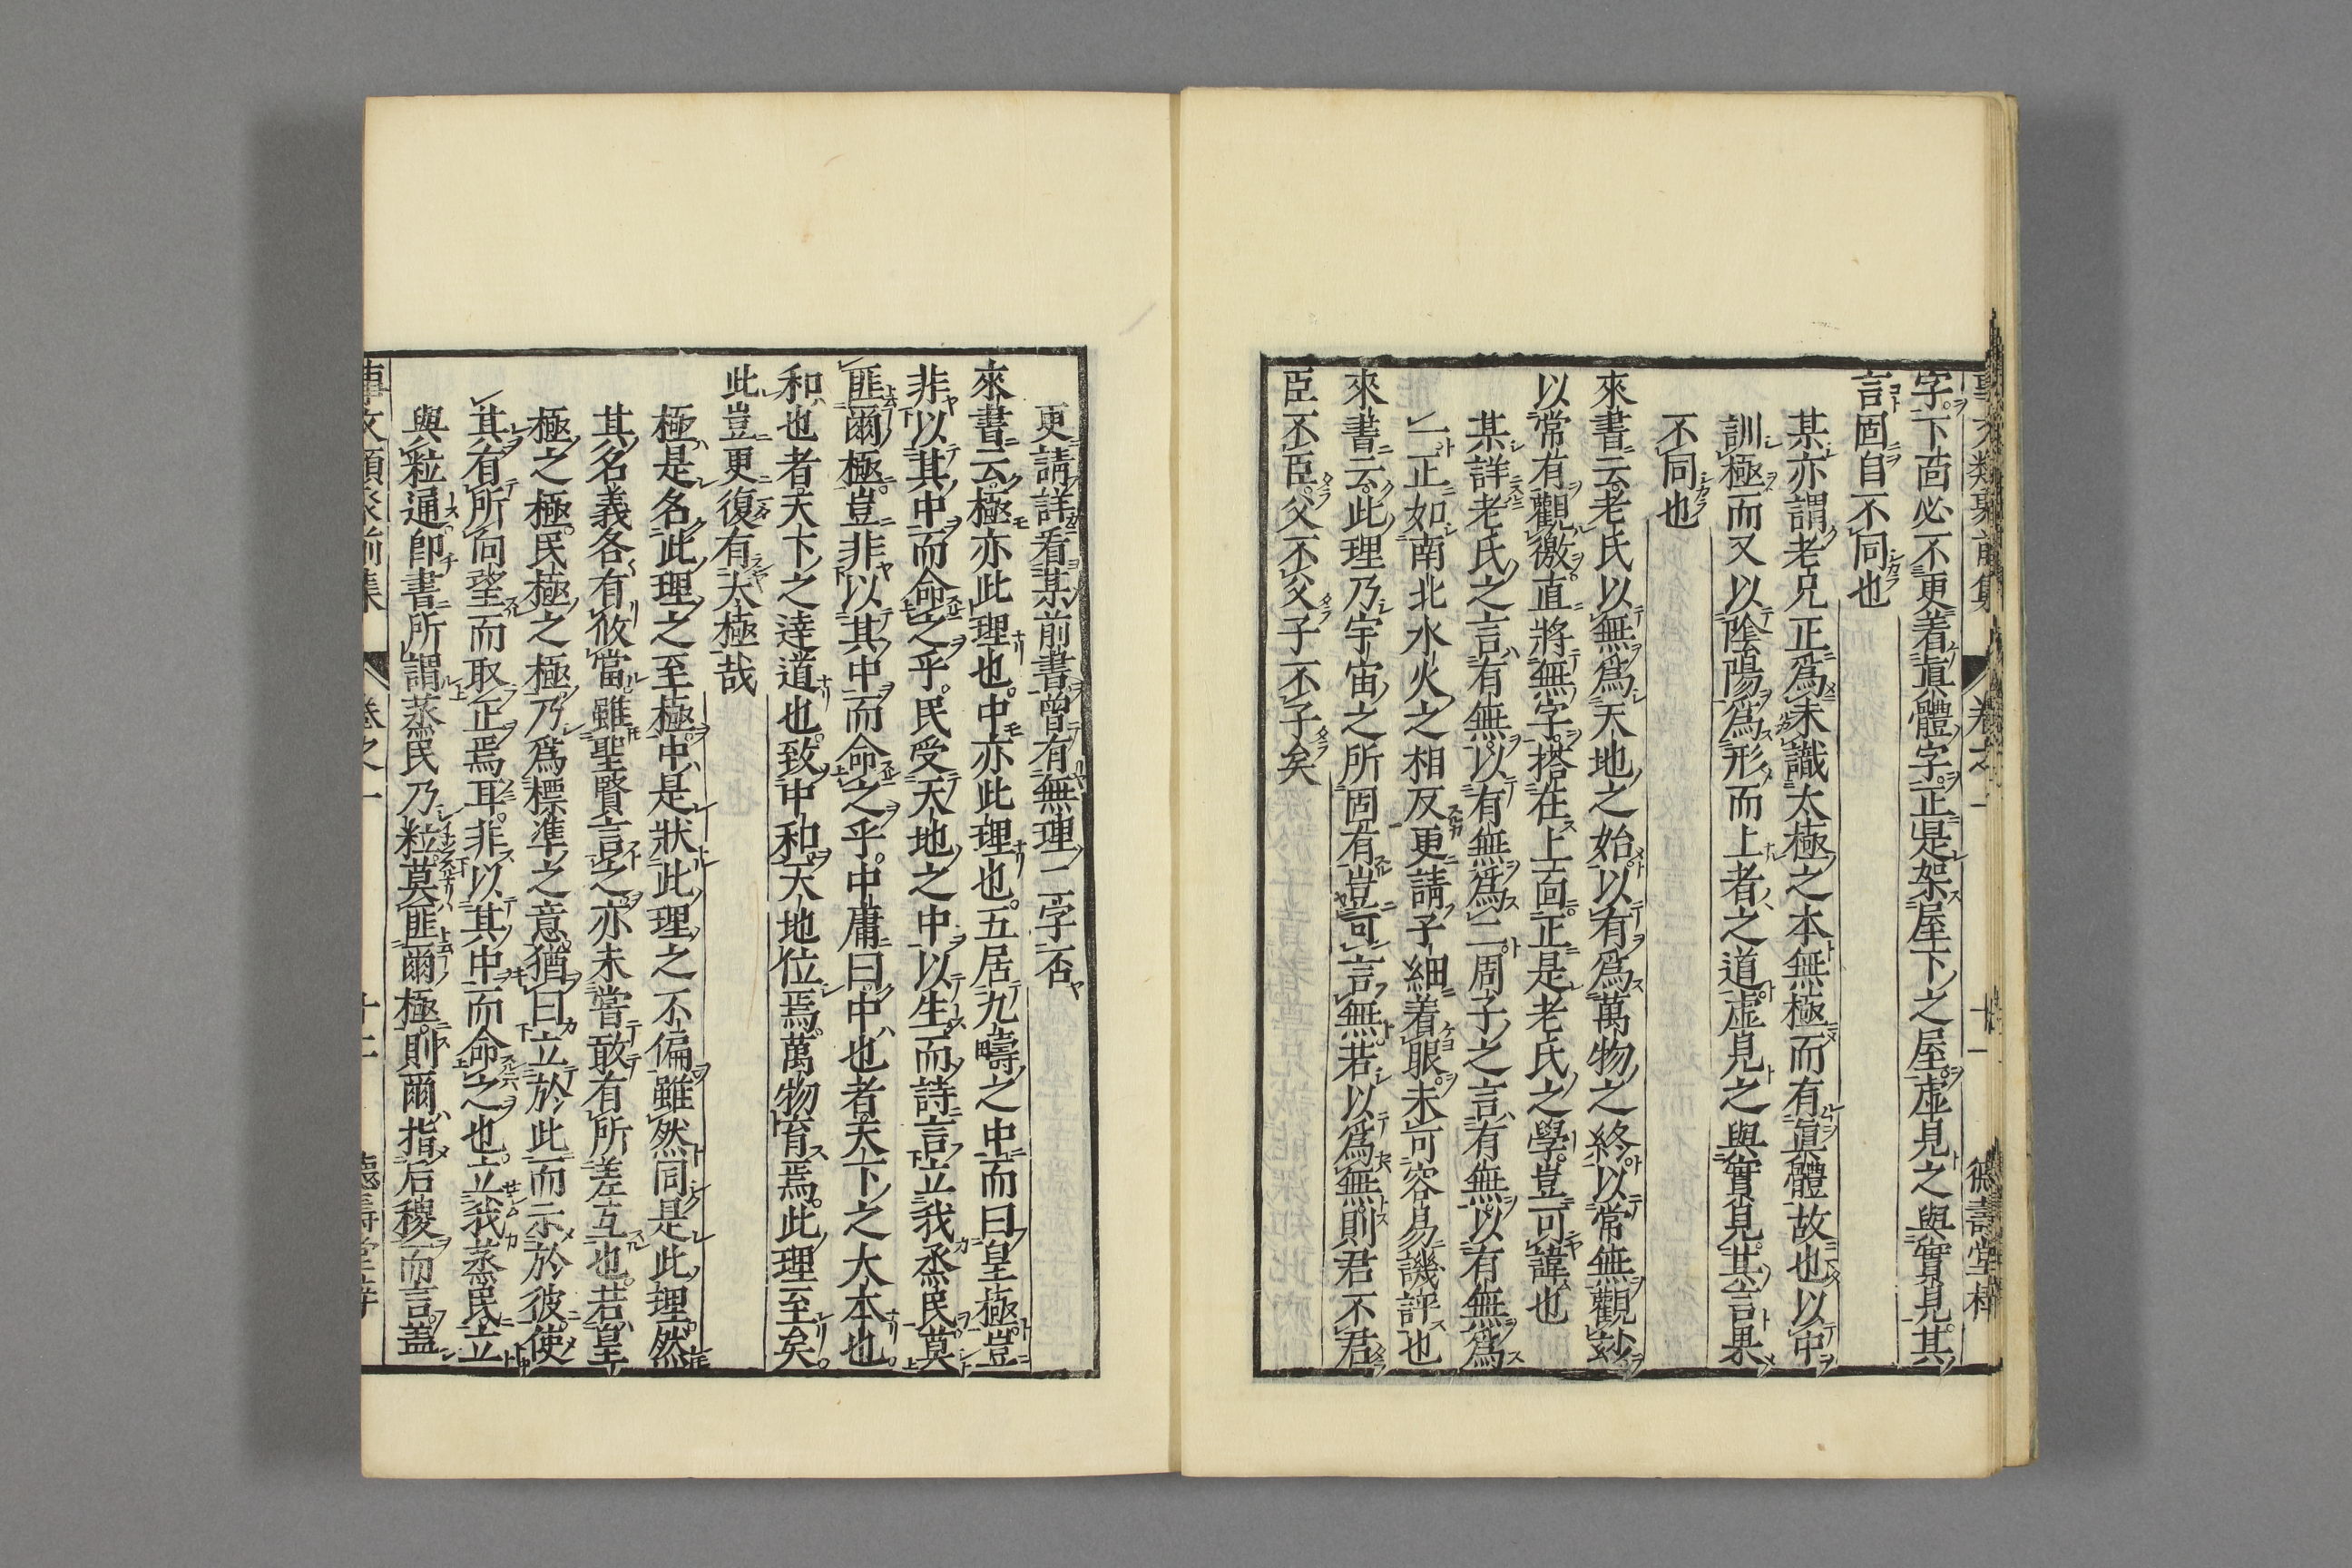 字下面必不更着眞體字正是架屋下之屋虛見之與實見其
言固自不同也
某亦謂老兄正爲未識太極之本無極而有眞體故也以中
訓極而又以陰陽爲形而上者之道虛見之與實見其言果
不同也
來書云老氏以無爲天地之始以有爲萬物之終以常無觀玅
以常有觀徼直將無字搭在上面正是老氏之學豈可諱也
某詳老氏之言有無以有無爲二周子之言有無以有無爲
一正如南北水火之相反更請子細着眼未可容易譏評也
來書云此理乃宇宙之所固有豈可言無若以爲無則君不君
臣不臣父不父子不子矣
更請詳看某前書曾有無理二字否
來書云極亦此理也中亦此理也五居九疇之中而曰皇極豈
非以其中而命之乎民受天地之中以生而詩言立我烝民莫
匪爾極豈非以其中而命之乎中庸曰中也者天下之大本也
和也者天下之達道也致中和天地位焉萬物育焉此理至矣
此豈更復有太極哉
極是名此理之至極中是狀此理之不偏雖然同是此理然
其名義各有攸當雖聖賢言之亦未嘗敢有所差互也若皇
極之極民極之極乃爲標準之意猶曰立於此而示於彼使
其有所向望而取正焉耳非以其中而命之也立我烝民立
與粒通卽書所謂蒸民乃粒莫匪爾極則爾指后稷而言蓋